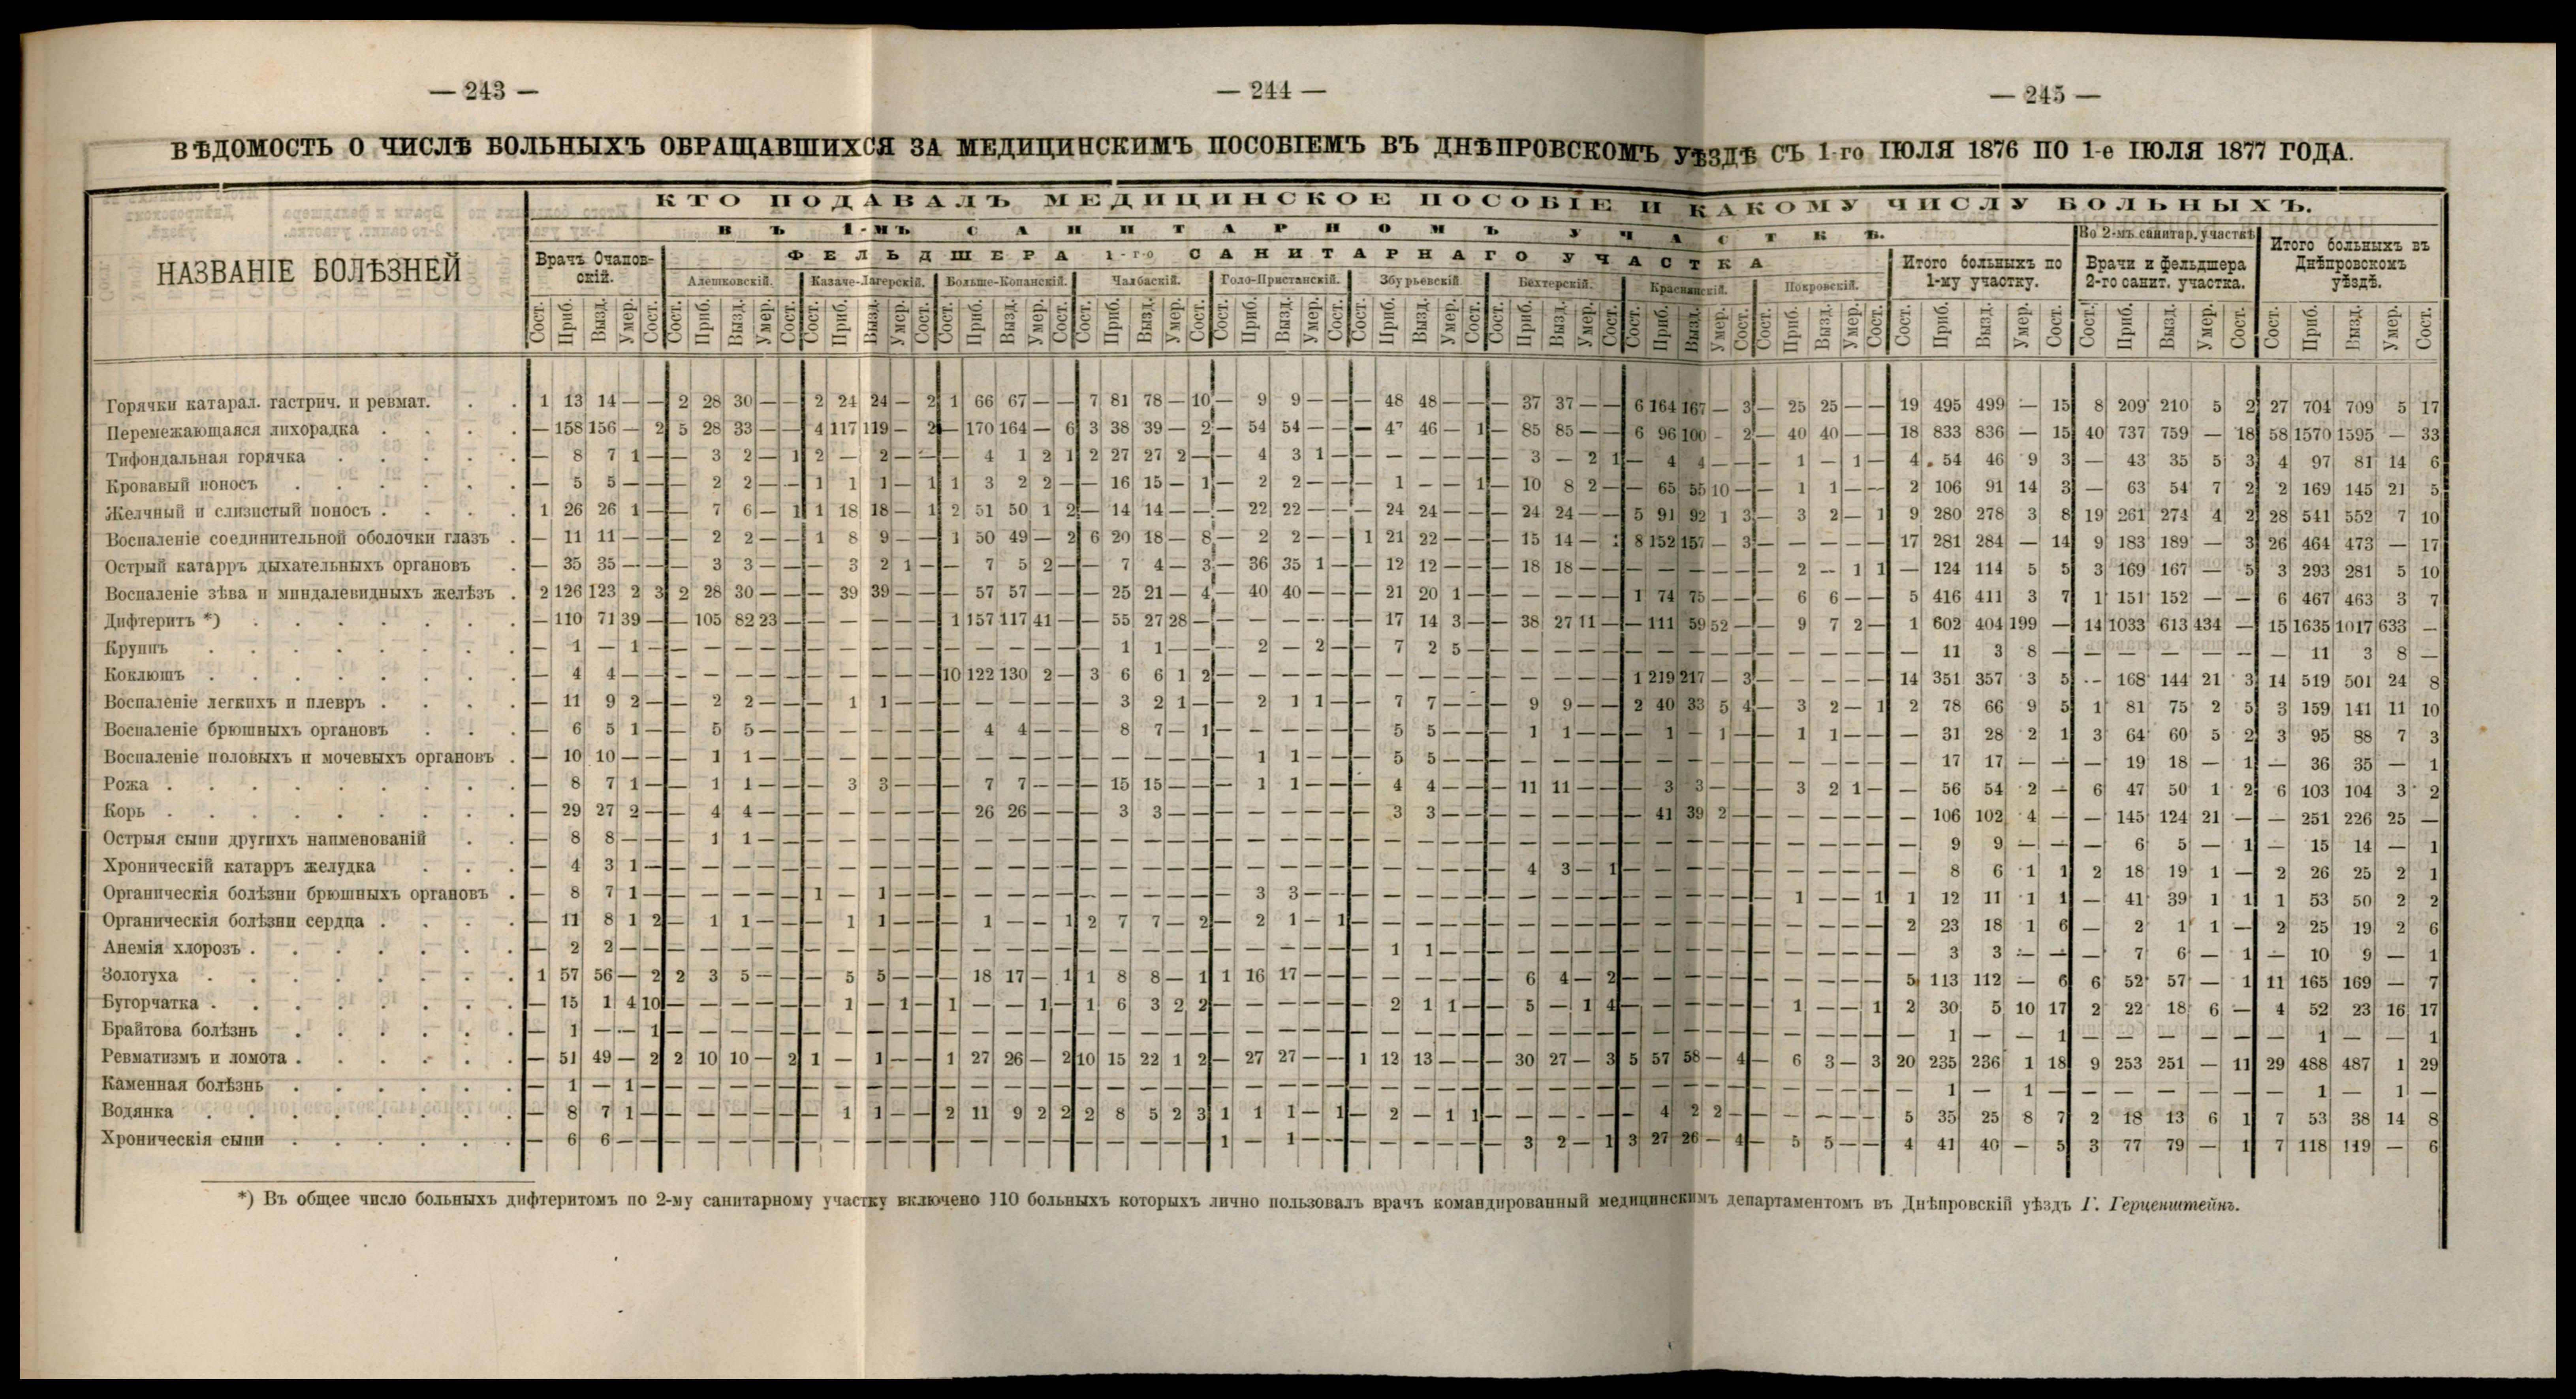 — 243 —
— 244 —
— 245 —
ВѢДОМОСТЬ О ЧИСЛѢ БОЛЬНЫХЪ ОБРАЩАВШИХСЯ ЗА МЕДИЦИНСКИМЪ ПОСОБІЕМЪ ВЪ ДНѢПРОВСКОМЪ УѢЗДѢ СЪ 1-го ІЮЛЯ 1876 ПО 1-е ІЮЛЯ 1877 ГОДА.
НАЗВАНІЕ БОЛѢЗНЕЙ
КТО ПОДАВАЛЪ МЕДИЦИНСКОЕ ПОСОБІЕ И КАКОМУ ЧИСЛУ БОЛЬНЫХЪ.
ВЪ 1-мъ САНИТАРНОМЪ УЧАСТКѢ.
Во 2-мъ санитар. участкѣ
Итого больныхъ въ Днѣпровскомъ уѣздѣ.
Врачъ Очаповскій.
ФЕЛЬДШЕРА 1-го САНИТАРНАГО УЧАСТКА
Итого больныхъ по 1-му участку.
Врачи и фельдшера 2-го санит. участка.
Алешковскій. Казаче-Лагерскій. Больше-Копанскій. Чалбаскій. Голо-Пристанскій. Збурьевскій. Бехтерскій. Краснянскій. Покровскій.
Сост. Приб. Вызд. Умер. Сост. Сост. Приб. Вызд. Умер. Сост. Сост. Приб. Вызд. Умер. Сост. Сост. Приб. Вызд. Умер. Сост. Сост. Приб. Вызд. Умер. Сост. Сост. Приб. Вызд. Умер. Сост. Сост. Приб. Вызд. Умер. Сост. Сост. Приб. Вызд. Умер. Сост. Сост. Приб. Вызд. Умер. Сост. Сост. Приб. Вызд. Умер. Сост. Сост. Приб. Вызд. Умер. Сост. Сост. Приб. Вызд. Умер. Сост. Сост. Приб. Вызд. Умер. Сост.
Горячки катарал. гастрич. и ревмат. 1 13 14 — — 2 28 30 — — 2 24 24 — 2 1 66 67 — — 7 81 78 — 10 — 9 9 — — — 48 48 — — — 37 37 — — 6 164 167 — 3 — 25 25 — — 19 495 499 — 15 8 209 210 5 2 27 704 709 5 17
Перемежающаяся лихорадка — 158 156 — 2 5 28 33 — — 4 117 119 — 2 — 170 164 — 6 3 38 39 — 2 — 54 54 — — — 47 46 — 1 — 85 85 — — 6 96 100 — 2 — 40 40 — — 18 833 836 — 15 40 737 759 — 18 58 1570 1595 — 33
Тифондальная горячка — 8 7 1 — — 3 2 — 1 2 — 2 — — — 4 1 2 1 2 27 27 2 — — 4 3 1 — — — — — — — 3 — 2 1 — 4 4 — — — 1 — 1 — 4 54 46 9 3 — 43 35 5 3 4 97 81 14 6
Кровавый поносъ — 5 5 — — — 2 2 — — 1 1 1 — 1 1 3 2 2 — — 16 15 — 1 — 2 2 — — — 1 — — 1 — 10 8 2 — — 65 55 10 — — 1 1 — — 2 106 91 14 3 — 63 54 7 2 2 169 145 21 5
Желчный и слизистый поносъ 1 26 26 1 — — 7 6 — 1 1 18 18 — 1 2 51 50 1 2 — 14 14 — — — 22 22 — — — 24 24 — — — 24 24 — — 5 91 92 1 3 — 3 2 — 1 9 280 278 3 8 19 261 274 4 2 28 541 552 7 10
Воспаленіе соединительной оболочки глазъ — 11 11 — — — 2 2 — — 1 8 9 — — 1 50 49 — 2 6 20 18 — 8 — 2 2 — — 1 21 22 — — — 15 14 — 8 152 157 — 3 — — — — — 17 281 284 — 14 9 183 189 — 3 26 464 473 — 17
Острый катарръ дыхательныхъ органовъ — 35 35 — — — 3 3 — — — 3 2 1 — — 7 5 2 — — 7 4 — 3 — 36 35 1 — — 12 12 — — — 18 18 — — — — — — — — 2 — 1 1 — 124 114 5 5 3 169 167 — 5 3 293 281 5 10
Воспаленіе зѣва и миндалевидныхъ желѣзъ 2 126 123 2 3 2 28 30 — — — 39 39 — — — 57 57 — — — 25 21 — 4 — 40 40 — — — 21 20 1 — — — — — — 1 74 75 — — — 6 6 — — 5 416 411 3 7 1 151 152 — — 6 467 463 3 7
Дифтеритъ *) — 110 71 39 — — 105 82 23 — — — — — — 1 157 117 41 — — 55 27 28 — — — — — — — 17 14 3 — — 38 27 11 — — 111 59 52 — — 9 7 2 — 1 602 404 199 — 14 1033 613 434 — 15 1635 1017 633 —
Крупъ — 1 — 1 — — — — — — — — — — — — — — — — — 1 1 — — — 2 — 2 — — 7 2 5 — — — — — — — — — — — — — — — — 11 3 8 — — — — — — — 11 3 8 —
Коклюшъ — 4 4 — — — — — — — — — — — — 10 122 130 2 — 3 6 6 1 2 — — — — — — — — — — — — — — — 1 219 217 — 3 — — — — — 14 351 357 3 5 — 168 144 21 3 14 519 501 24 8
Воспаленіе легкихъ и плевръ — 11 9 2 — — 2 2 — — — 1 1 — — — — — — — — 3 2 1 — — 2 1 1 — — 7 7 — — — 9 9 — — 2 40 33 5 4 — 3 2 — 1 2 78 66 9 5 1 81 75 2 5 3 159 141 11 10
Воспаленіе брюшныхъ органовъ — 6 5 1 — — 5 5 — — — — — — — — 4 4 — — — 8 7 — 1 — — — — — — 5 5 — — — 1 1 — — — 1 — 1 — — 1 1 — — — 31 28 2 1 3 64 60 5 2 3 95 88 7 3
Воспаленіе половыхъ и мочевыхъ органовъ — 10 10 — — — 1 1 — — — — — — — — — — — — — — — — — — 1 1 — — — 5 5 — — — — — — — — — — — — — — — — — — 17 17 — — — 19 18 — 1 — 36 35 — 1
Рожа — 8 7 1 — — 1 1 — — — 3 3 — — — 7 7 — — — 15 15 — — — 1 1 — — — 4 4 — — — 11 11 — — — 3 3 — — — 3 2 1 — — 56 54 2 — 6 47 50 1 2 6 103 104 3 2
Корь — 29 27 2 — — 4 4 — — — — — — — — 26 26 — — — 3 3 — — — — — — — — 3 3 — — — — — — — — 41 39 2 — — — — — — — 106 102 4 — — 145 124 21 — — 251 226 25 —
Острыя сыпи другихъ наименованій — 8 8 — — — 1 1 — — — — — — — — — — — — — — — — — — — — — — — — — — — — — — — — — — — — — — — — — — — 9 9 — — — 6 5 — 1 — 15 14 — 1
Хроническій катарръ желудка — 4 3 1 — — — — — — — — — — — — — — — — — — — — — — — — — — — — — — — — 4 3 — 1 — — — — — — — — — — — 8 6 1 1 2 18 19 1 — 2 26 25 2 1
Органическія болѣзни брюшныхъ органовъ — 8 7 1 — — — — — — 1 — 1 — — — — — — — — — — — — — 3 3 — — — — — — — — — — — — — — — — — — 1 — — 1 1 12 11 1 1 — 41 39 1 1 1 53 50 2 2
Органическія болѣзни сердца — 11 8 1 2 — 1 1 — — — 1 1 — — — 1 — — 1 2 7 7 — 2 — 2 1 — 1 — — — — — — — — — — — — — — — — — — — — 2 23 18 1 6 — 2 1 1 — 2 25 19 2 6
Анемія хлорозъ — 2 2 — — — — — — — — — — — — — — — — — — — — — — — — — — — — 1 1 — — — — — — — — — — — — — — — — — — 3 3 — — — 7 6 — 1 — 10 9 — 1
Золотуха 1 57 56 — 2 2 3 5 — — — 5 5 — — — 18 17 — 1 1 8 8 — 1 1 16 17 — — — — — — — — 6 4 — 2 — — — — — — — — — — 5 113 112 — 6 6 52 57 — 1 11 165 169 — 7
Бугорчатка — 15 1 4 10 — — — — — — 1 — 1 — 1 — — 1 — 1 6 3 2 2 — — — — — — 2 1 1 — — 5 — 1 4 — — — — — — 1 — — 1 2 30 5 10 17 2 22 18 6 — 4 52 23 16 17
Брайтова болѣзнь — 1 — — 1 — — — — — — — — — — — — — — — — — — — — — — — — — — — — — — — — — — — — — — — — — — — — — — 1 — — 1 — — — — — — 1 — — 1
Ревматизмъ и ломота — 51 49 — 2 2 10 10 — 2 1 — 1 — — 1 27 26 — 2 10 15 22 1 2 — 27 27 — — 1 12 13 — — — 30 27 — 3 5 57 58 — 4 — 6 3 — 3 20 235 236 1 18 9 253 251 — 11 29 488 487 1 29
Каменная болѣзнь — 1 — 1 — — — — — — — — — — — — — — — — — — — — — — — — — — — — — — — — — — — — — — — — — — — — — — — 1 — 1 — — — — — — — 1 — 1 —
Водянка — 8 7 1 — — — — — — — 1 1 — — 2 11 9 2 2 2 8 5 2 3 1 1 1 — 1 — 2 — 1 1 — — — — — — 4 2 2 — — — — — — 5 35 25 8 7 2 18 13 6 1 7 53 38 14 8
Хроническія сыпи — 6 6 — — — — — — — — — — — — — — — — — — — — — — 1 — 1 — — — — — — — — 3 2 — 1 3 27 26 — 4 — 5 5 — — 4 41 40 — 5 3 77 79 — 1 7 118 119 — 6
*) Въ общее число больныхъ дифтеритомъ по 2-му санитарному участку включено 110 больныхъ которыхъ лично пользовалъ врачъ командированный медицинскимъ департаментомъ въ Днѣпровскій уѣздъ Г. Герценштейнъ.